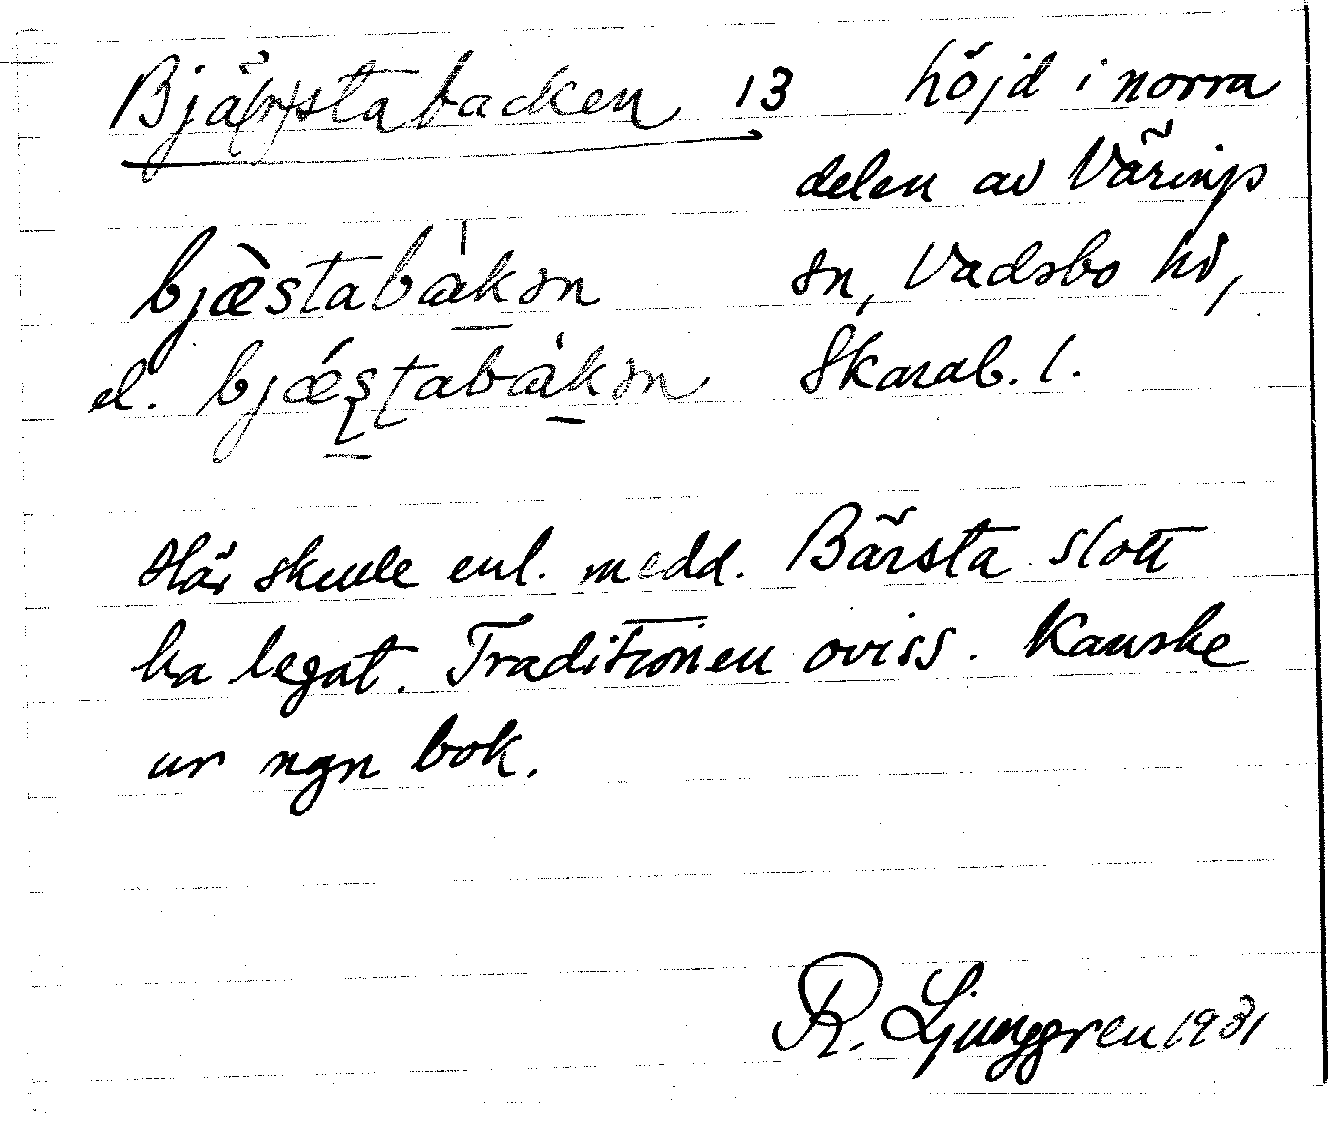 Bjä(r)stabacken 13 höjd i norra
delen av Värings
bjæ̀stabàkən sn, Vadsbo hd,
el. bjǽstabàkən Skarab. l.
Här skulle enl. medd. Bärsta slott
ha legat. Traditionen oviss. Kanske
ur ngn bok.
R. Ljunggren 1931